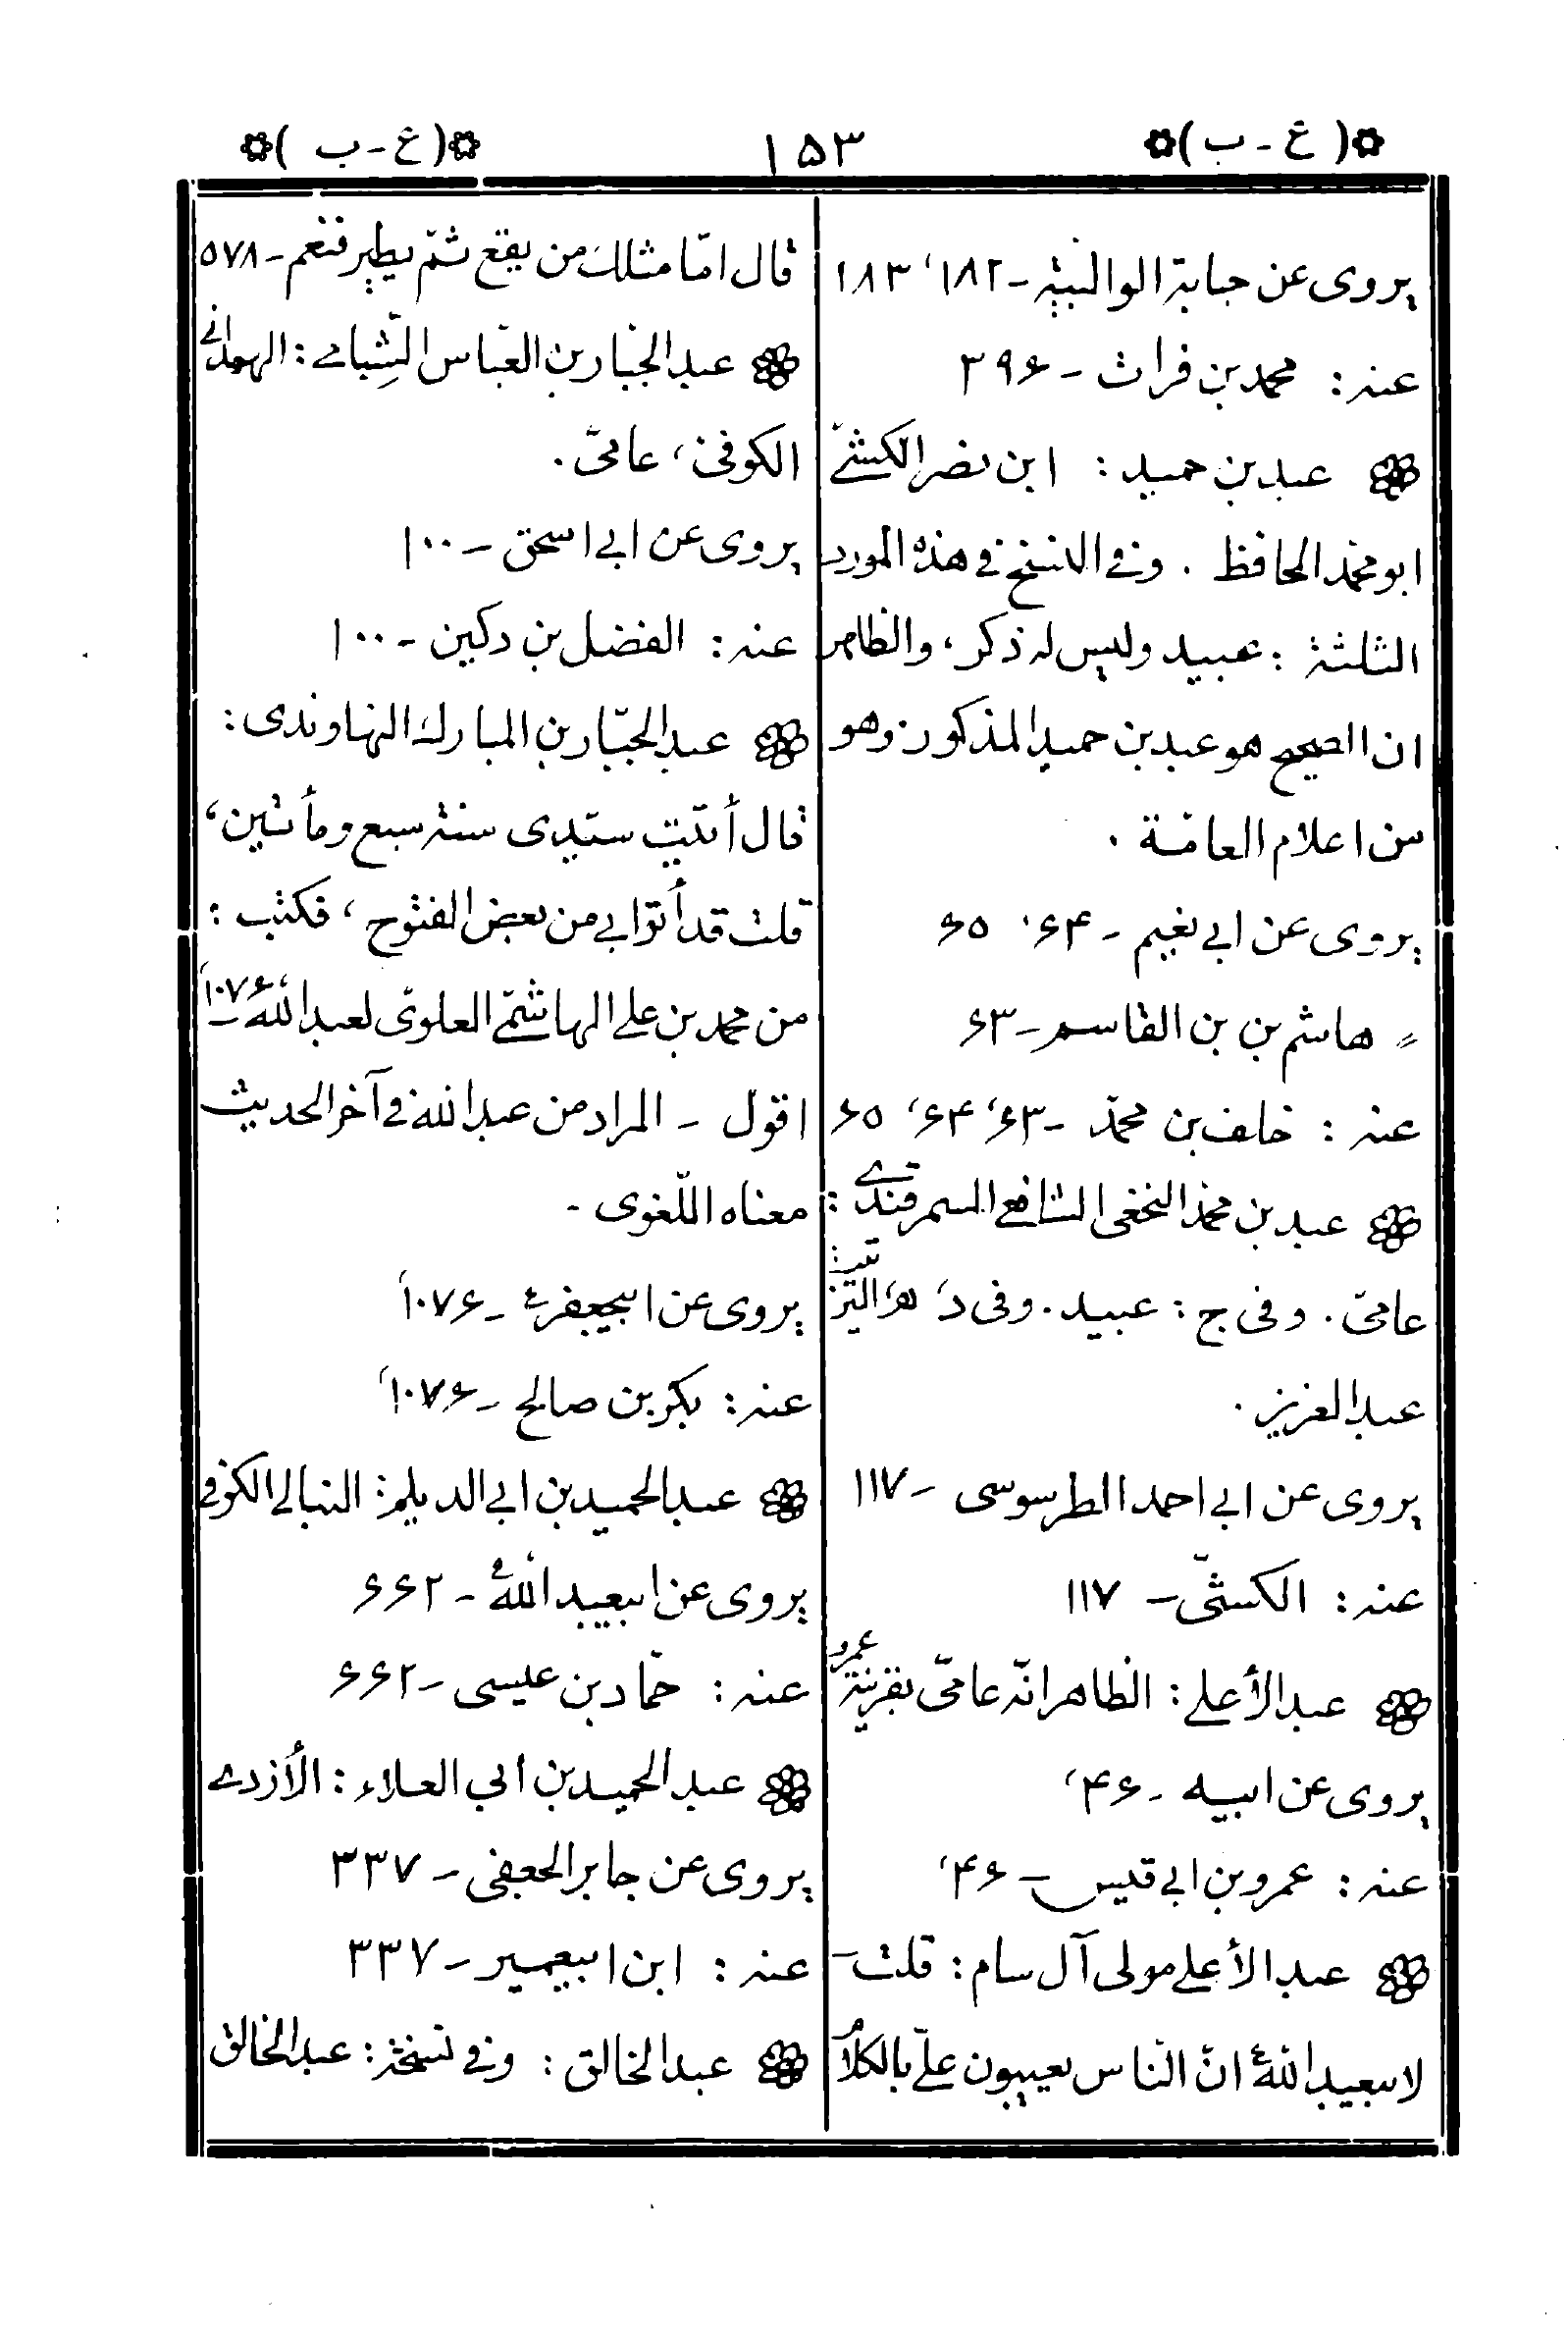 ❁( ع - ب )❁
١٥٣
❁( ع - ب )❁
يروى عن حبابة الوالبيّة - ١٨٢، ١٨٣
عنه : محمد بن فرات - ٣٩۶
❁ عبد بن حميد : ابن نصر الكشّي
ابو محمّد الحافظ . وفي النسخ في هذه المورد
الثلثة : عبيد وليس له ذكر، والظاهر
ان الصحيح هو عبد بن حميد المذكور وهو
من اعلام العامّة .
يروى عن ابي نعيم - ۶۴، ۶٥
〃 هاشم بن بن القاسم - ۶٣
عنه : خلف بن محمّد - ۶٣، ۶۴، ۶٥
❁ عبد بن محمّد النخعي الشافعي السمرقندي :
عامّى . وفى ج : عبيد . وفى د، ه،
عبد العزيز .
يروى عن ابي احمد الطرسوسى - ١١٧
عنه : الكشّى - ١١٧
❁ عبد الأعلى : الظاهر انّه عامّى بقرينة عمرو
يروى عن ابيه - ۴۶،
عنه : عمرو بن ابي قيس - ۴۶،
❁ عبد الأعلى مولى آل سام : قلت -
لابيعبد اللهؑ انّ النّاس يعيبون علىّ بالكلام
قال امّا مثلك من يقع ثمّ يطير فنعم - ٥٧٨
❁ عبد الجبّار بن العبّاس الشِّبامي : الهمداني
الكوفيّ، عامّى .
يروى عن ابي اسحق - ١٠٠
عنه : الفضل بن دكين - ١٠٠
❁ عبد الجبّار بن المبارك النهاوندى :
قال أتيت سيّدى سنة سبع ومأتين،
قلت قد أتوا بي من بعض الفتوح، فكتب :
من محمد بن علي الهاشمّي العلوىّ لعبد اللهؑ - ١٠٧۶،
اقول - المراد من عبد الله في آخر الحديث
معناه اللّغوى .
يروى عن ابيجعفرؑ - ١٠٧۶،
عنه : بكر بن صالح - ١٠٧۶،
❁ عبد الحميد بن ابي الديلم : النبالي الكوفي
يروى عن ابيعبد اللهؑ - ۶۶٢
عنه : حمّاد بن عيسى - ۶۶٢
❁ عبد الحميد بن ابي العلاء : الأزدي
يروى عن جابر الجعفى - ٣٣٧
عنه : ابن ابيعمير - ٣٣٧
❁ عبد الخالق : وفي نسخة : عبد الخالق